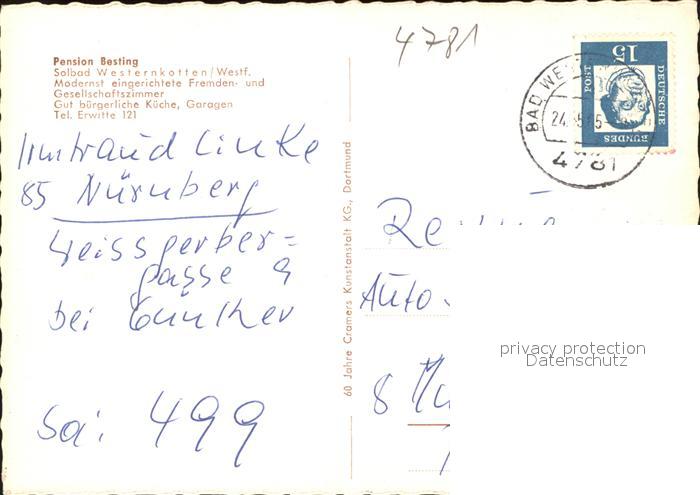 4781
Pension Besting
Solbad Westernkotten/Westf.
Modernst eingerichtete Fremden- und
Gesellschaftszimmer
Gut bürgerliche Küche, Garagen
Tel. Erwitte 121
Irmtraud Linke
85 Nürnberg
Weissgerber=
gasse 9
bei Günther
Sa: 499
60 Jahre Cramers Kunstanstalt KG., Dortmund
15
DEUTSCHE
BUNDES
POST
BAD WES
24.
4781
Re
Auto
8 Mü
privacy protection
Datenschutz